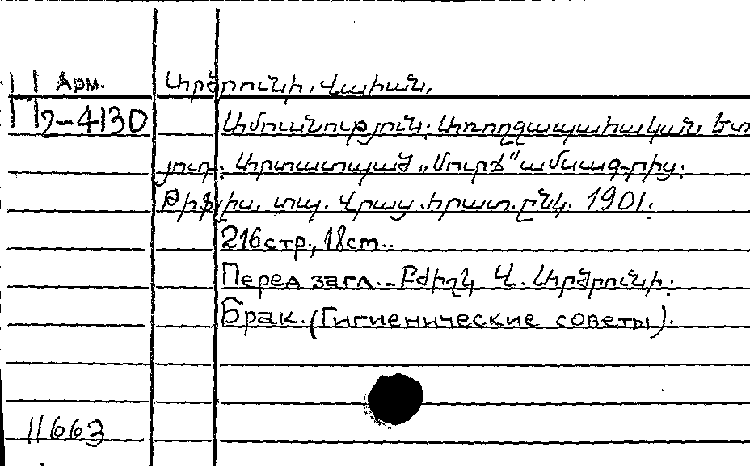 Арм. Արծրունի, Վահան.
П2-4130 Ամուսնություն: Առողջապահական խո
յուդ: Արտատպած „Մուրճ" ամսագրից:
Թիֆլիս. տպ. Վրաս. հրատ. ընկ. 1901.
216стр., 18cm.
Перед загл. - Բժիշկ Վ. Արծրունի:
Брак. (Гигиенические советы).
11663